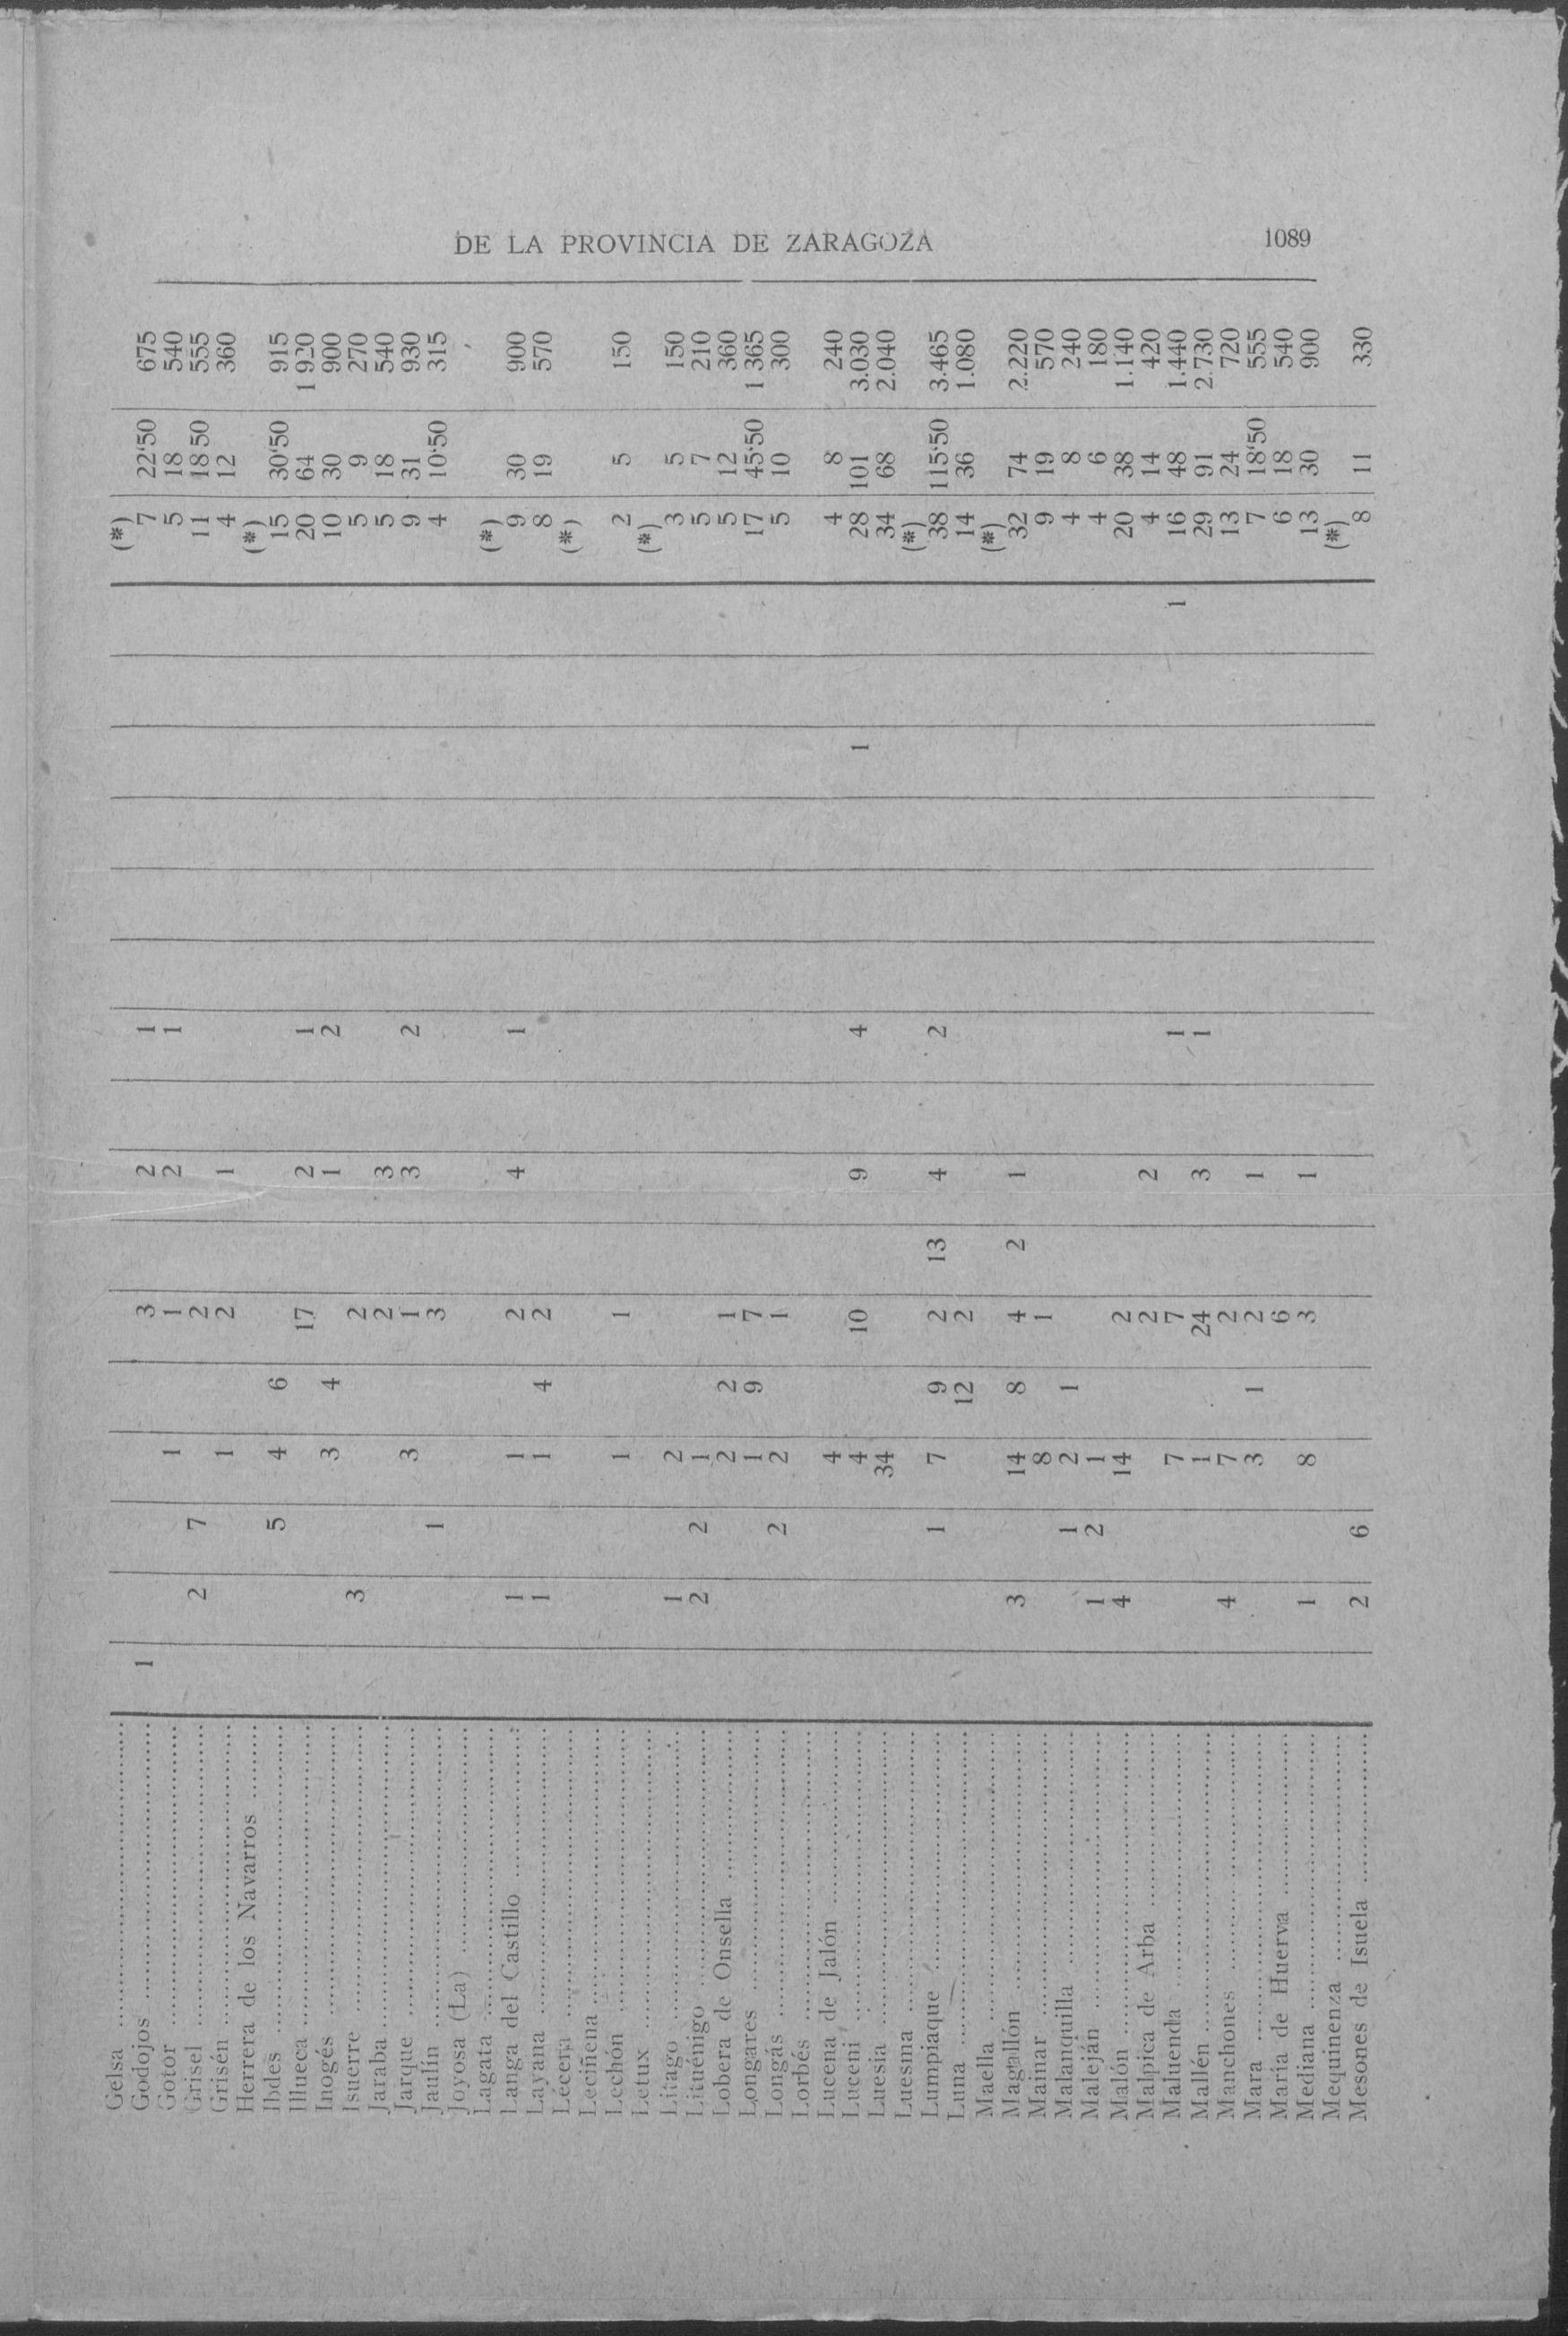 DE LA PROVINCIA DE ZARAGOZA 1089
Gelsa .......... (*)
Godojos .......... 1 3 2 1 7 22'50 675
Gotor .......... 1 1 2 1 5 18 540
Grisel .......... 2 7 2 11 18 50 555
Grisén .......... 1 2 1 4 12 360
Herrera de los Navarros .......... (*)
Ibdes .......... 5 4 6 15 30'50 915
Illueca .......... 17 2 1 20 64 1 920
Inogés .......... 3 4 1 2 10 30 900
Isuerre .......... 3 2 5 9 270
Jaraba .......... 2 3 5 18 540
Jarque .......... 3 1 3 2 9 31 930
Jaulín .......... 1 3 4 10'50 315
Joyosa (La) ..........
Lagata .......... (*)
Langa del Castillo .......... 1 1 2 4 1 9 30 900
Layana .......... 1 1 4 2 8 19 570
Lécera .......... (*)
Leciñena ..........
Lechón .......... 1 1 2 5 150
Letux .......... (*)
Litago .......... 1 2 3 5 150
Lituénigo .......... 2 2 1 5 7 210
Lobera de Onsella .......... 2 2 1 5 12 360
Longares .......... 1 9 7 17 45'50 1 365
Longás .......... 2 2 1 5 10 300
Lorbés ..........
Lucena de Jalón .......... 4 4 8 240
Luceni .......... 4 10 9 4 1 28 101 3.030
Luesia .......... 34 34 68 2.040
Luesma .......... (*)
Lumpiaque .......... 1 7 9 2 13 4 2 38 115'50 3.465
Luna .......... 12 2 14 36 1.080
Maella .......... (*)
Magallón .......... 3 14 8 4 2 1 32 74 2.220
Mainar .......... 8 1 9 19 570
Malanquilla .......... 1 2 1 4 8 240
Maleján .......... 1 2 1 4 6 180
Malón .......... 4 14 2 20 38 1.140
Malpica de Arba .......... 2 2 4 14 420
Maluenda .......... 7 7 1 1 16 48 1.440
Mallén .......... 1 24 3 1 29 91 2.730
Manchones .......... 4 7 2 13 24 720
Mara .......... 3 1 2 1 7 18'50 555
María de Huerva .......... 6 6 18 540
Mediana .......... 1 8 3 1 13 30 900
Mequinenza .......... (*)
Mesones de Isuela .......... 2 6 8 11 330